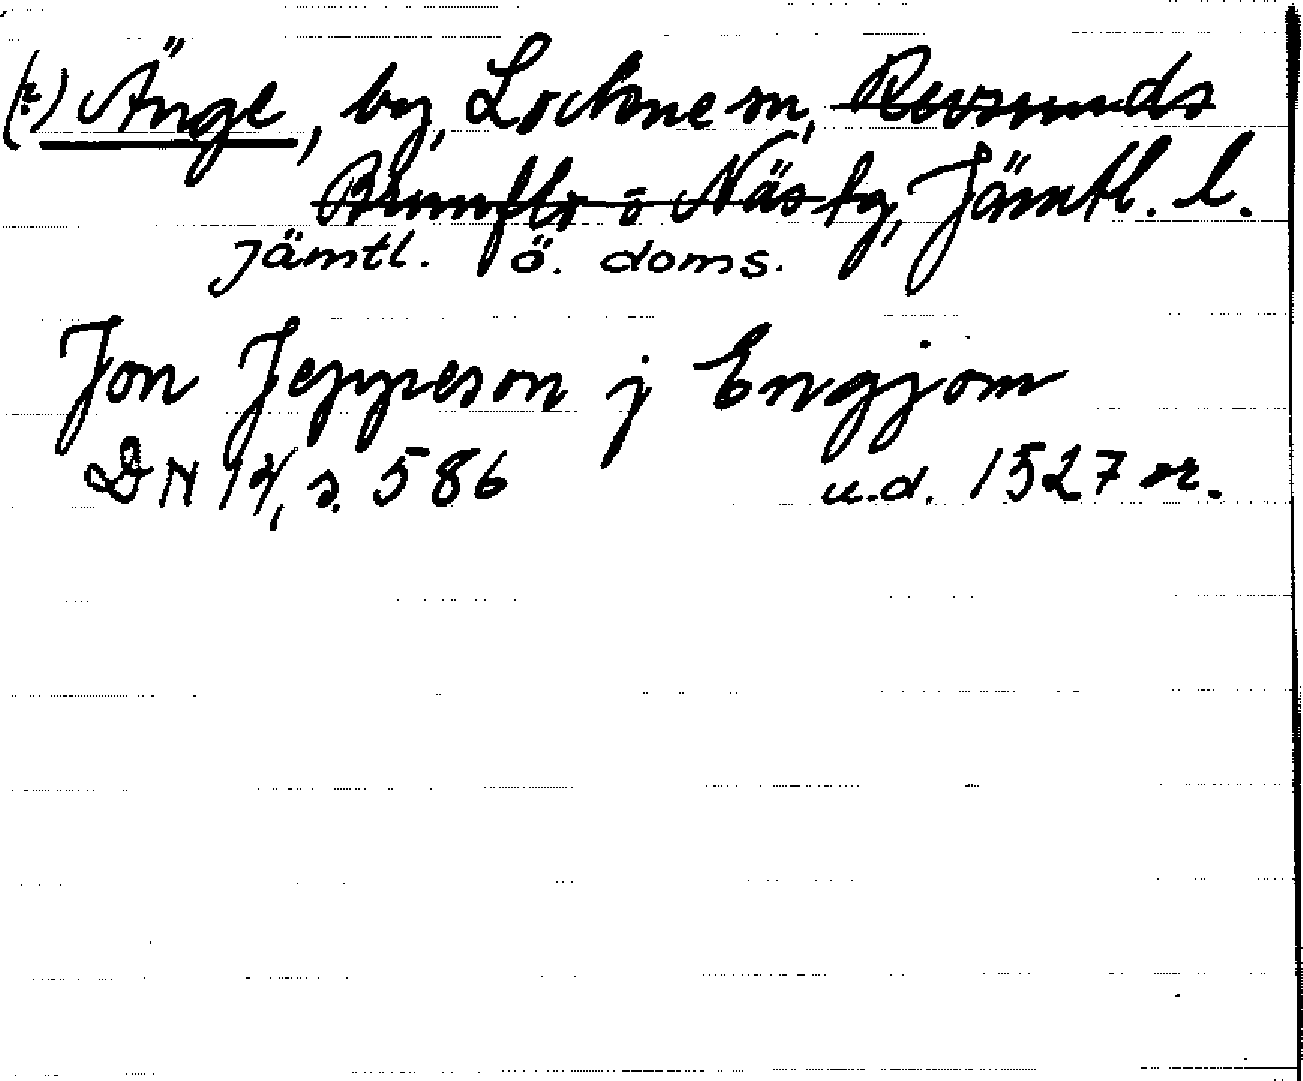 (?) Änge, by, Lockne sn, Revsunds
Brunflo o Näs tg, Jämtl. l.
Jämtl. ö. doms.
Jon Jeppeson j Engjom
DN 14, s. 586 u.d. 1527 or.